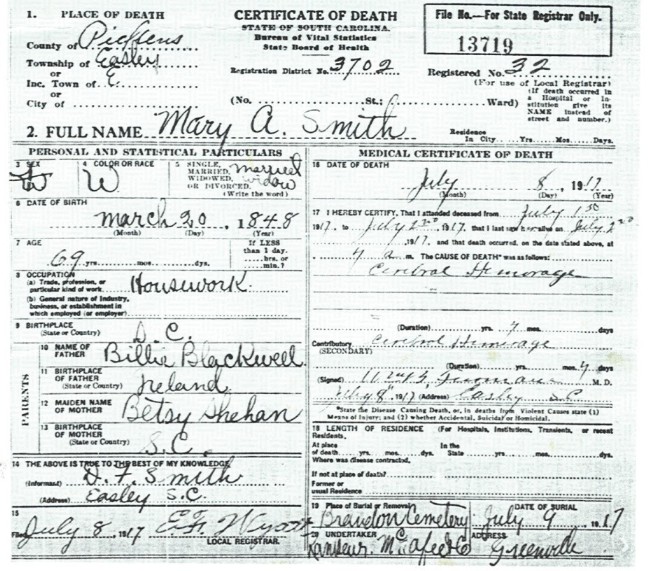 1. PLACE OF DEATH
County of Pickens
Township of Easley
or
Inc. Town of E.
or
City of
CERTIFICATE OF DEATH
STATE OF SOUTH CAROLINA.
Bureau of Vital Statistics
State Board of Health
Registration District No. 3702
(No. St.; Ward)
File No.—For State Registrar Only.
13719
Registered No. 32
(For use of Local Registrar)
(If death occurred in a Hospital or Institution give its NAME instead of street and number.)
2. FULL NAME Mary A. Smith
Residence In City Yrs. Mos. Days.
PERSONAL AND STATISTICAL PARTICULARS
3 SEX
4 COLOR OR RACE
W
5 SINGLE, MARRIED, WIDOWED, OR DIVORCED.
(Write the word)
widow
6 DATE OF BIRTH
March 20, 1848
(Month) (Day) (Year)
7 AGE
69 yrs. mos. dys.
If LESS than 1 day.
hrs. or min.?
8 OCCUPATION
(a) Trade, profession, or particular kind of work
Housework
(b) General nature of Industry, business, or establishment in which employed (or employer)
9 BIRTHPLACE
(State or Country)
S.C.
PARENTS
10 NAME OF FATHER
Billie Blackwell
11 BIRTHPLACE OF FATHER
(State or Country)
Ireland
12 MAIDEN NAME OF MOTHER
Betsy Shehan
13 BIRTHPLACE OF MOTHER
(State or Country)
S.C.
14 THE ABOVE IS TRUE TO THE BEST OF MY KNOWLEDGE
(Informant) D. F. Smith
(Address) Easley S.C.
15
Filed July 8, 1917
LOCAL REGISTRAR.
MEDICAL CERTIFICATE OF DEATH
16 DATE OF DEATH
July 8, 1917
(Month) (Day) (Year)
17 I HEREBY CERTIFY, That I attended deceased from July 1st
1917, to July 2nd 1917, that I last saw alive on July 2nd
1917, and that death occurred, on the date stated above, at
4 a m. The CAUSE OF DEATH* was as follows:
Cerebral Hemorage
(Duration) yrs. mos. days
Contributory Cerebral Hemorage
(SECONDARY)
(Duration) yrs. mos. days
(Signed) M. D.
July 8, 1917 (Address) Easley S.C.
*State the Disease Causing Death, or, in deaths from Violent Causes state (1) Means of Injury; and (2) whether Accidental, Suicidal or Homicidal.
18 LENGTH OF RESIDENCE (For Hospitals, Institutions, Transients, or recent Residents.
At place of death yrs. mos. dys.
In the State yrs. mos. dys.
Where was disease contracted,
If not at place of death?
Former or usual Residence
19 Place of Burial or Removal
Brandon Cemetery
DATE OF BURIAL
July 9 1917
20 UNDERTAKER
ADDRESS
Greenville